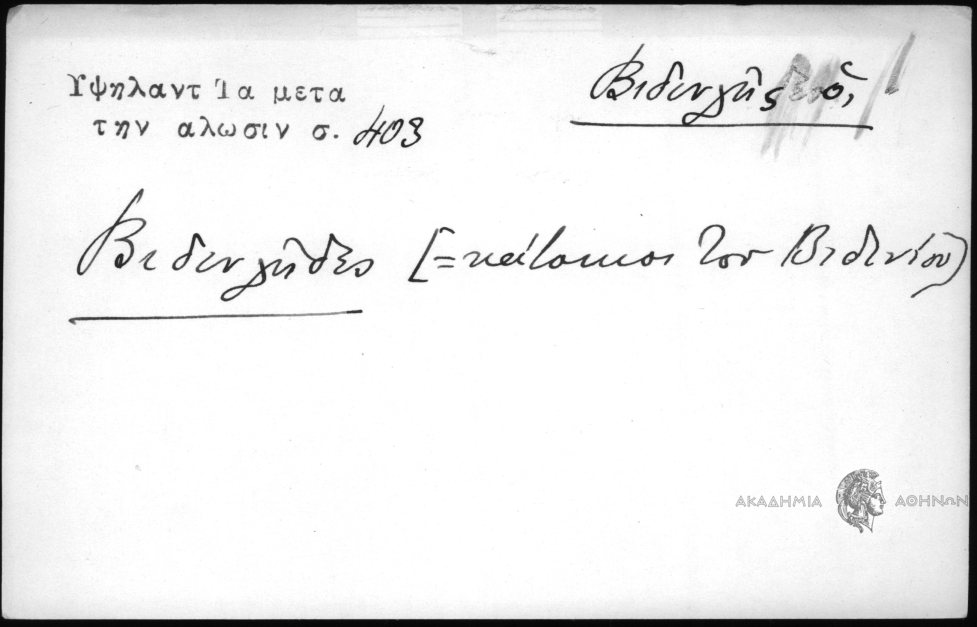 Υψηλαντ Ἱα μετα
την αλωσιν σ. 403
Βιδινλῆς ὁ,
Βιδινλῆδες (=κάτοικοι του Βιδινίου)
ΑΚΑΔΗΜΙΑ ΑΘΗΝΩΝ